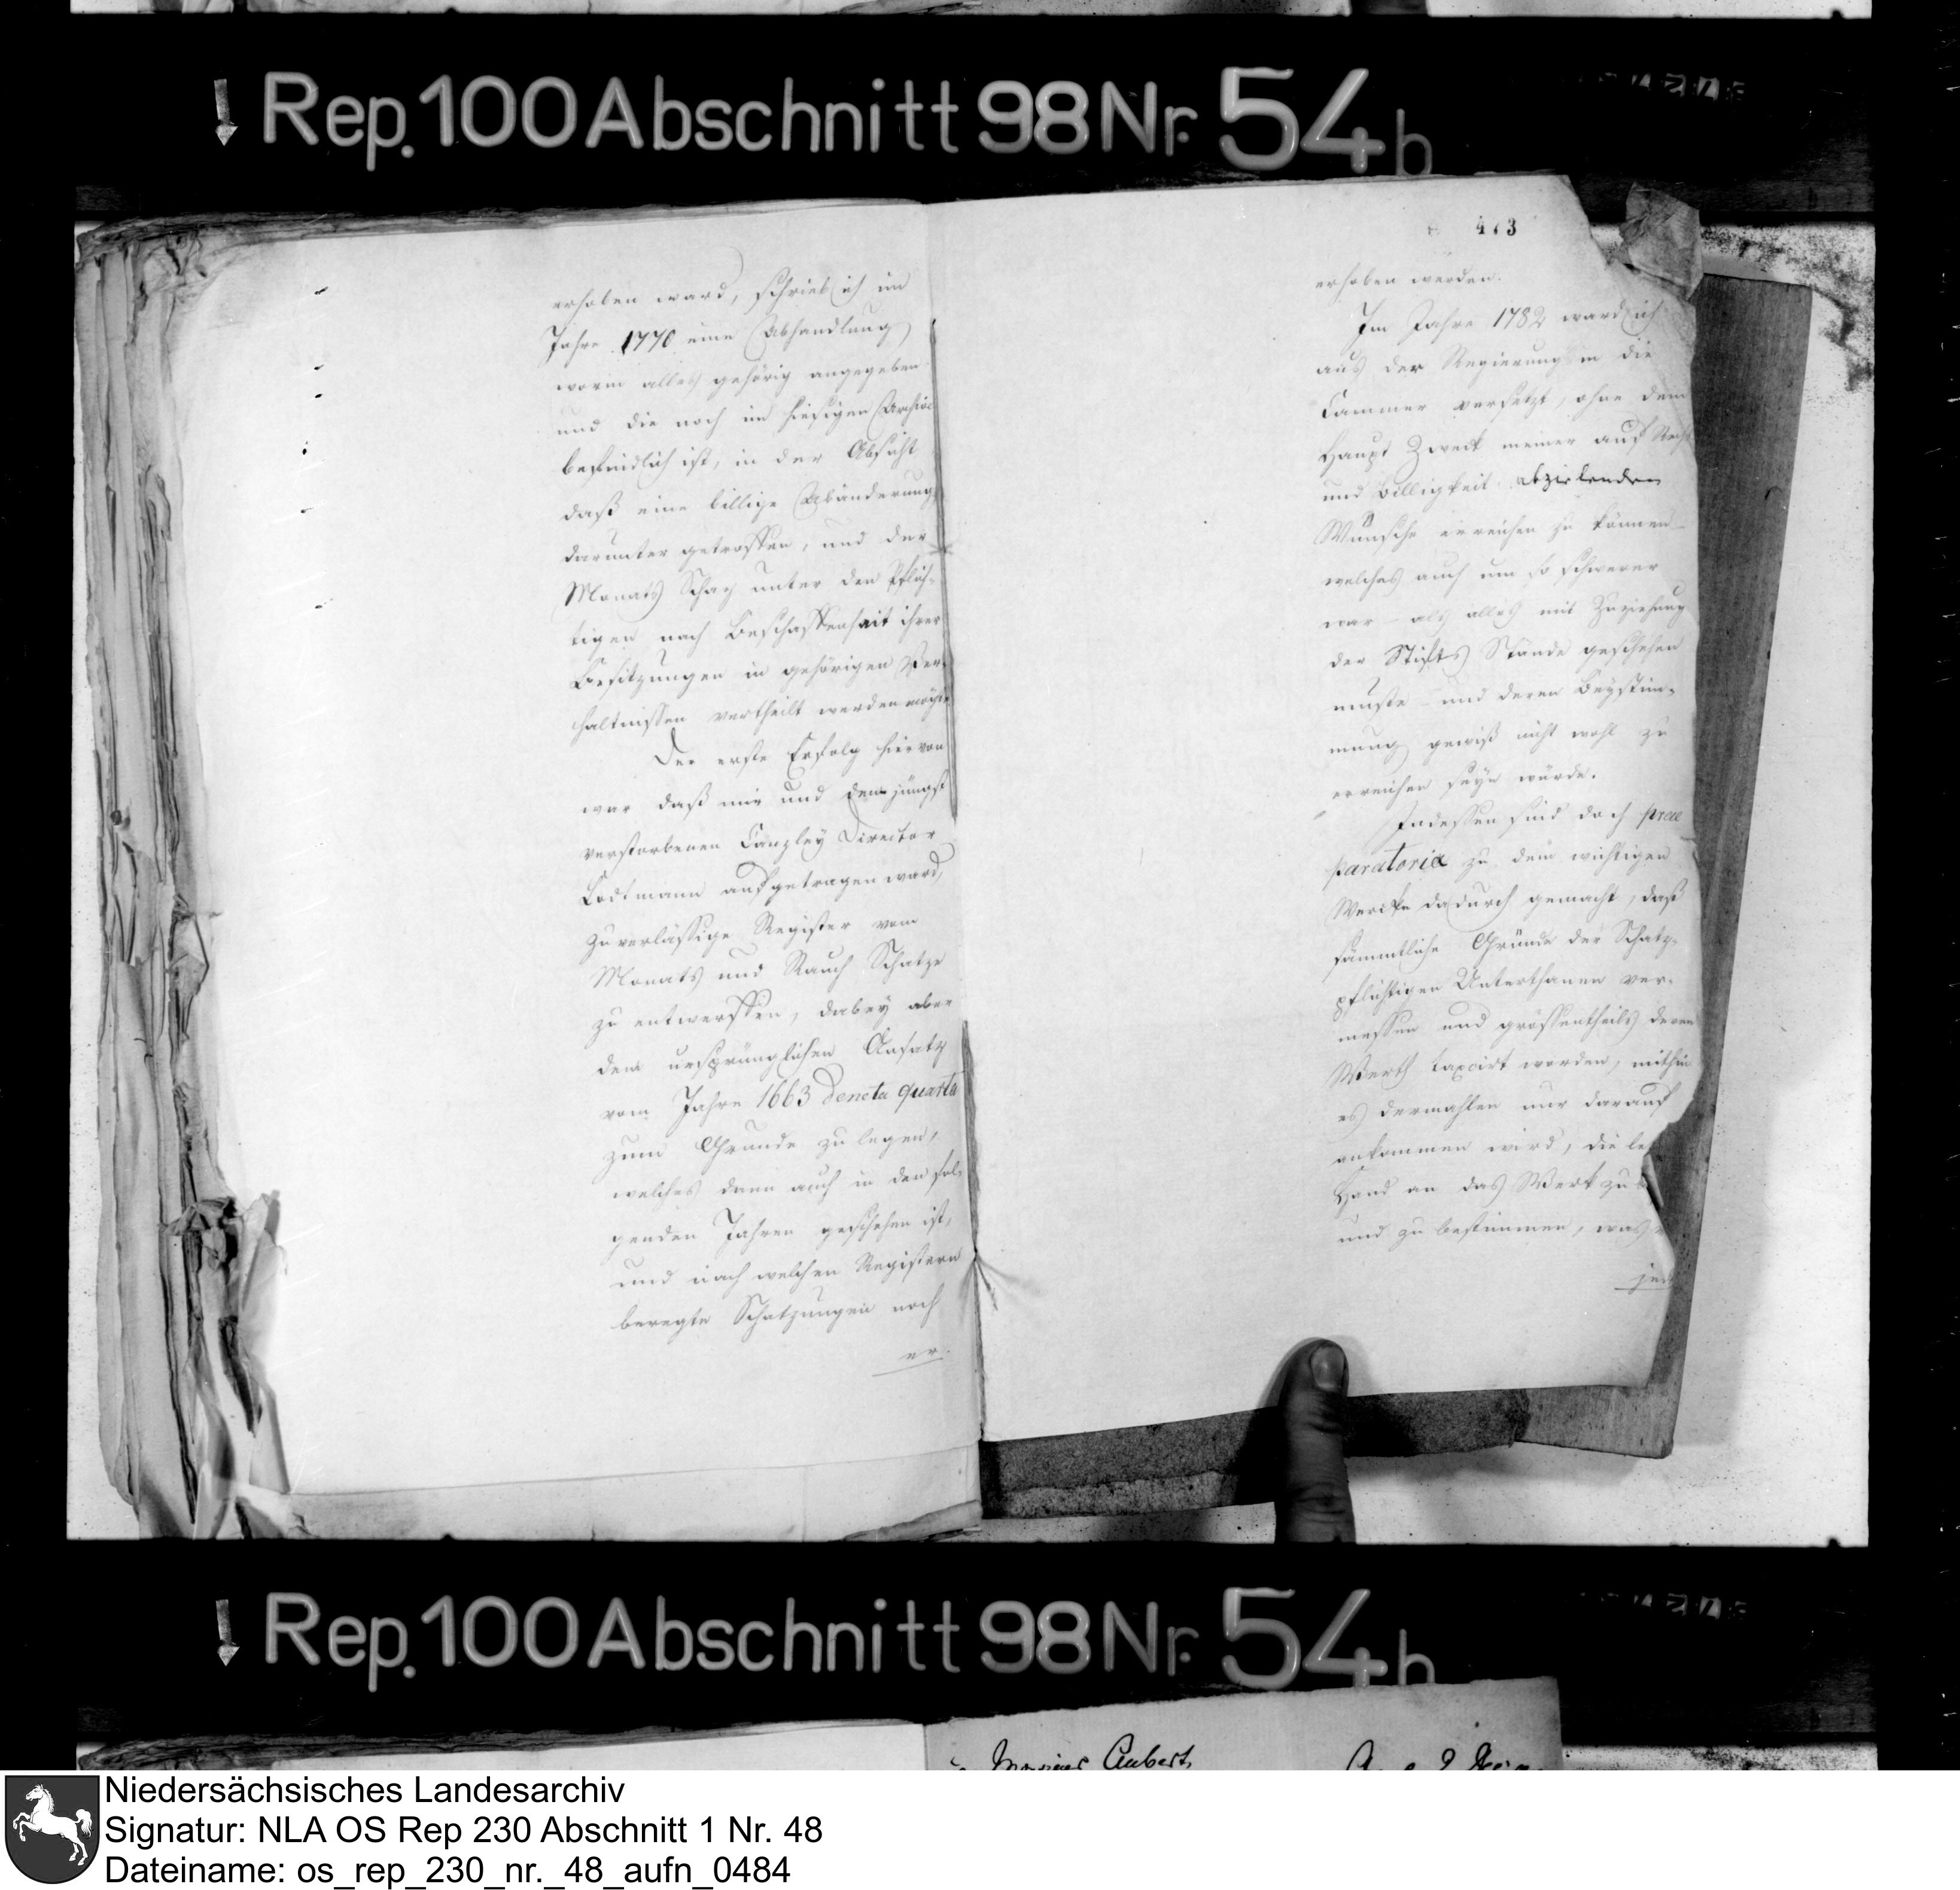 Rep. 100 Abschnitt 98 Nr. 54 b
erhoben ward, schrieb ich im
Jahre 1770 eine Abhandlung
worin alles gehörig angegeben
und die noch im hiesigen Archive
befindlich ist, in der Absicht
daß eine billige Abänderung
darunter getroffen, und der
Monats Schatz unter den Pflich-
tigen nach Beschaffenheit ihrer
Besitzungen in gehörigen Ver-
hältnissen vertheilt werden mögte
Der erste Erfolg hiervon
war daß mir und dem jüngst
verstorbenen Canzley Director
Lodtmann aufgetragen ward,
zuverlässige Register vom
Monats und Rauch Schatze
zu entwerffen, dabey aber
den ursprünglichen Ansatz
vom Jahre 1663 quarta
zum Grunde zu legen,
welches dann auch in den fol-
genden Jahren geschehen ist,
und nach welchen Registern
beregte Schatzungen noch
er-
473
erhoben werden.
Im Jahre 1782 ward ich
aus der Regierung in die
Cammer versetzt, ohne den
Haupt Zweck meiner auf Recht
und Billigkeit abzielenden
Wünsche erreichen zu können
welches auch um so schwerer
war - als alles mit Zuziehung
der Stifts Stände geschehen
muste - und deren Beystim-
mung gewiß nicht wohl zu
erreichen seyn würde.
Indessen sind doch prae
paratoria zu dem wichtigen
Wercke dadurch gemacht, daß
sämmtliche Gründe der Schatz-
pflichtigen Unterthanen ver-
messen und grössentheils deren
Werth taxirt worden, mithin
es dermahlen nur darauf
ankommen wird, die le
Hand an das Werk zu
und zu bestimmen, was
jed
Rep. 100 Abschnitt 98 Nr. 54 b
Niedersächsisches Landesarchiv
Signatur: NLA OS Rep 230 Abschnitt 1 Nr. 48
Dateiname: os_rep_230_nr._48_aufn_0484